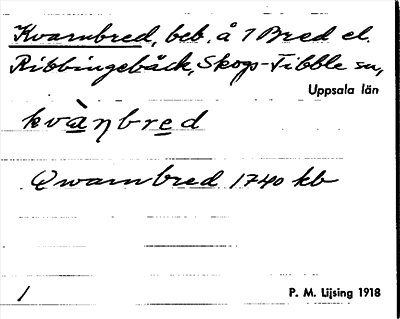 Kvarnbred, beb. å 7 Bred el.
Ribbingebäck, Skogs-Tibble sn,
Uppsala län
kvà̱ŋbre̱d
Qwarnbred 1740 kb
1
P. M. Lijsing 1918